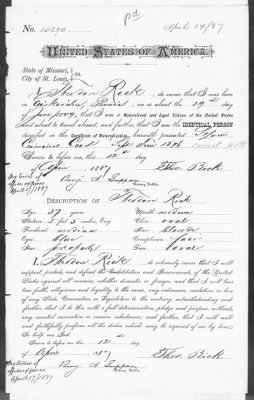 pd
April 14/87
No. 10540
UNITED STATES OF AMERICA.
State of Missouri,
City of St. Louis, } ss.
I, Theodore Rick, do swear that I was born
in Prussia, on or about the 29th day
of June 1849, that I am a Naturalized and Loyal Citizen of the United States
and about to travel abroad, and further, that I am the IDENTICAL PERSON
described in the Certificate of Naturalization herewith presented
Court Sept 1876
Sworn to before me, this 12th
day of April 1887 Theo. Rick
Benj. A. Notary Public.
April 17/1887
DESCRIPTION OF Theodore Rick
Age: 37 years Mouth: medium
Stature: 5 feet 5 inches Eng. Chin: oval
Forehead: medium Hair: blonde
Eyes: blue Complexion: fair
Nose: Face: oval
I, Theodore Rick, do solemnly swear that I will
support, protect, and defend the Constitution and Government of the United
States against all enemies, whether domestic or foreign, and that I will bear
true faith, allegiance and loyalty to the same, any ordinance, resolution or law
of any State Convention or Legislature to the contrary notwithstanding; and
further, that I do this with a full determination, pledge and purpose, without
any mental reservation or evasion whatsoever, and further, that I will well
and faithfully perform all the duties which may be required of me by law.
So help me God.
Sworn to before me, this 12th day
of April 1887 Theo. Rick
Benj. A.
Notary Public.
April 17/1887